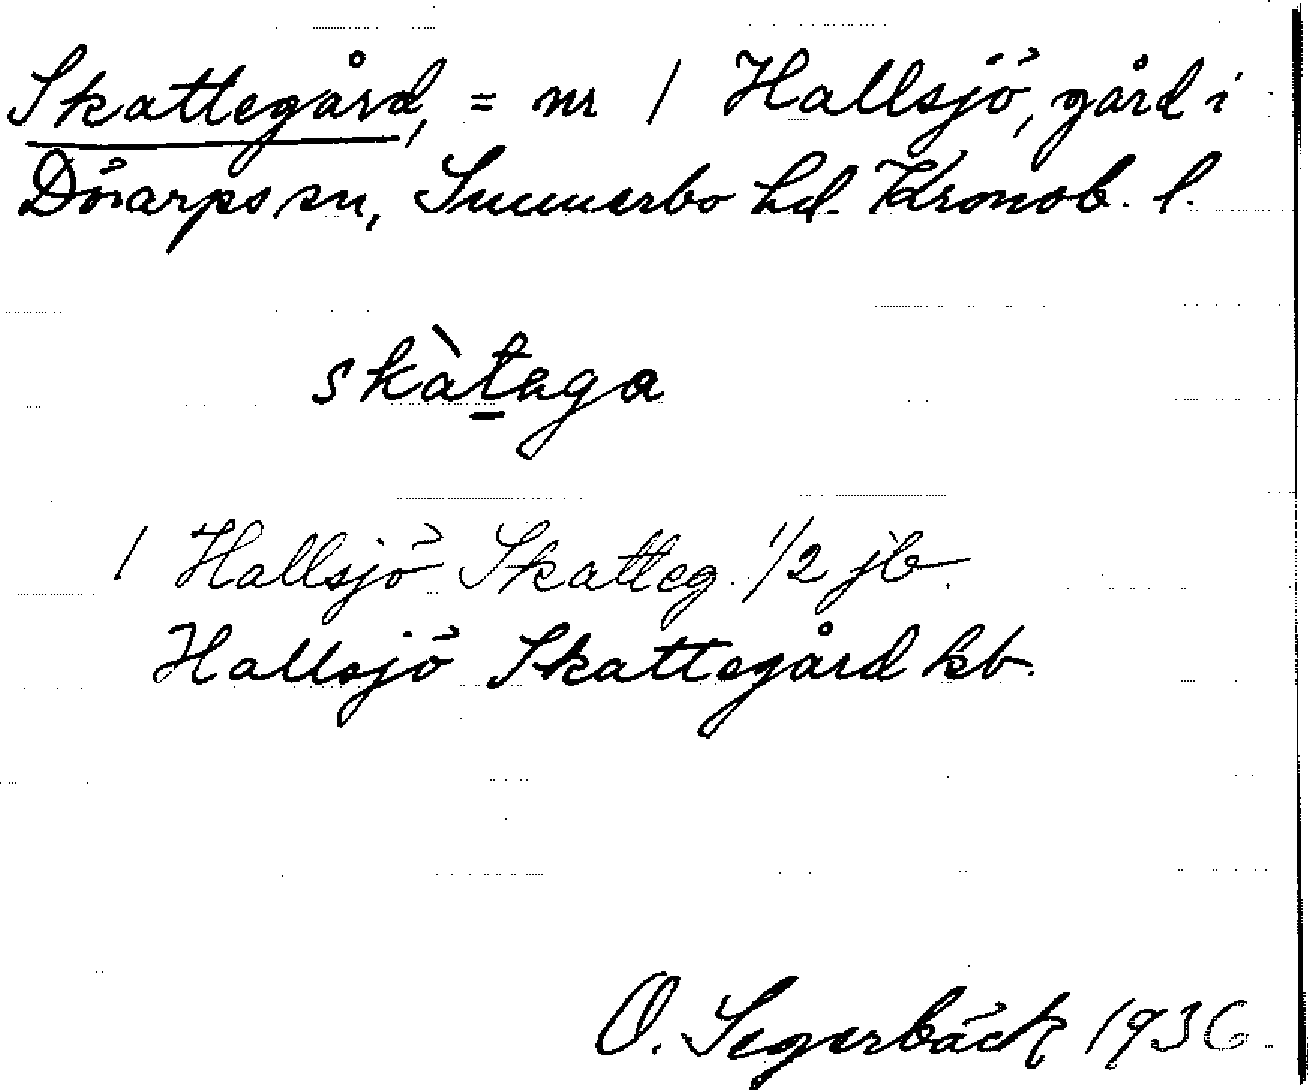 Skattegård, = nr 1 Hallsjö, gård i
Dörarps sn, Sunnerbo hd. Kronob. l.
skàt̲aga
1 Hallsjö Skatteg. 1/2 jb.
Hallsjö Skattegård kb.
O. Segerbäck 1936.